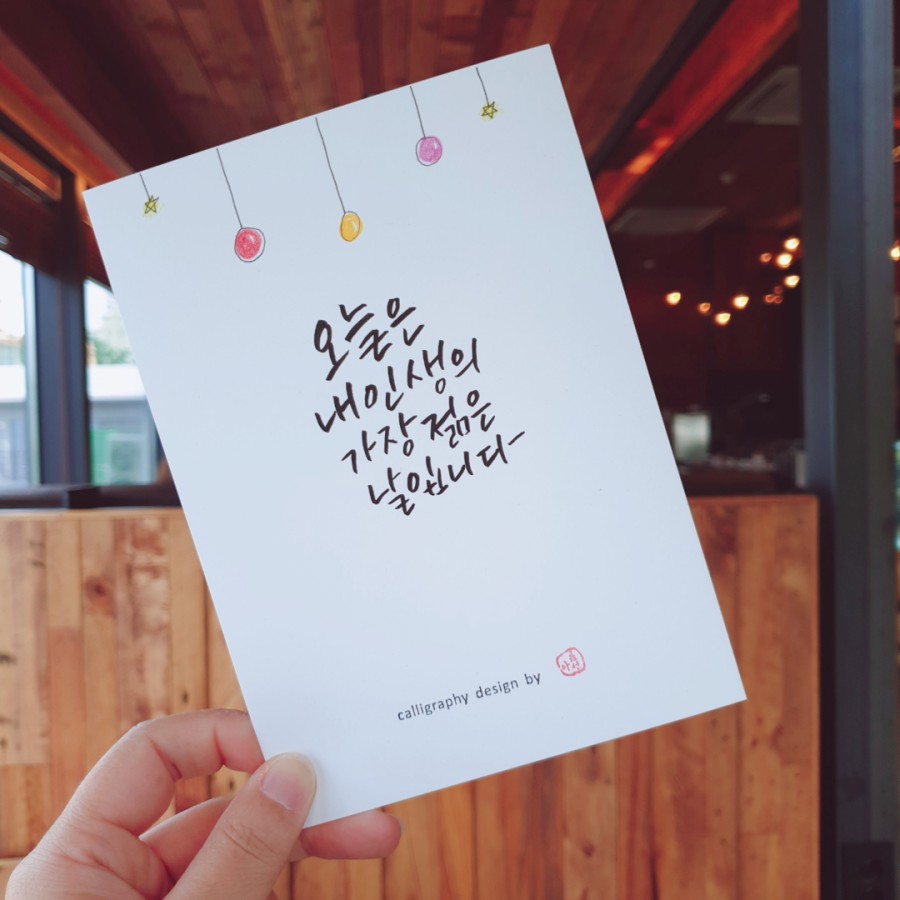 오늘은
내 인생의
가장 젊은
날입니다~
calligraphy design by